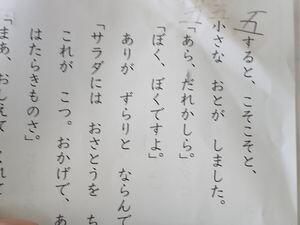 五
すると、こそこそと、
小さな おとが しました。
「あら、だれかしら。
「ぼく、ぼくですよ。」
ありが ずらりと ならんで
「サラダには おさとうを ち
これが こつ。おかげで、あ
はたらきものさ。」
「まあ、おしえて くれて